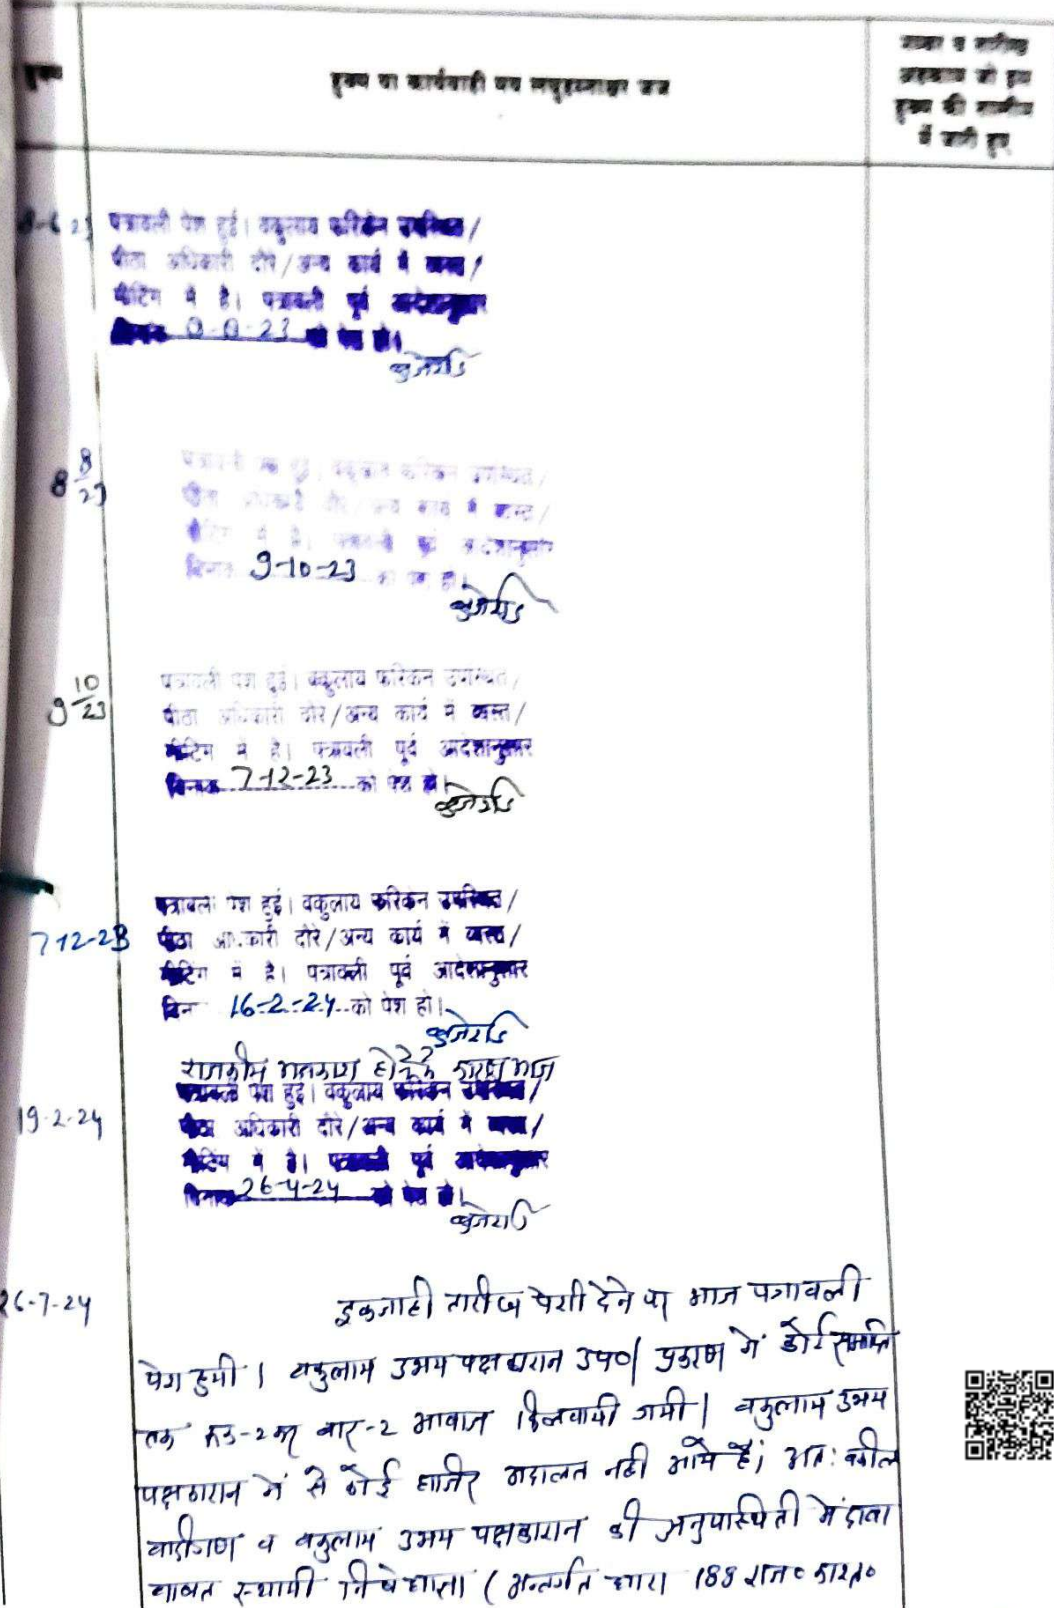 हुक्म
हुक्म या कार्यवाही मय लघुहस्ताक्षर जज
नम्बर व तारीख
अहकाम जो इस
हुक्म की तामील
में जारी हुए
पत्रावली पेश हुई। वकुलाय फरिकेन उपस्थित/
पीठा अधिकारी दौरे/अन्य कार्य में व्यस्त/
मीटिंग में है। पत्रावली पूर्व आदेशानुसार
दिनांक को पेश हो।
8 8/23
पत्रावली पेश हुई। वकुलाय फरिकेन उपस्थित/
पीठा अधिकारी दौरे/अन्य कार्य में व्यस्त/
मीटिंग में है। पत्रावली पूर्व आदेशानुसार
दिनांक 9-10-23 को पेश हो।
9 10/23
पत्रावली पेश हुई। वकुलाय फरिकेन उपस्थित/
पीठा अधिकारी दौरे/अन्य कार्य में व्यस्त/
मीटिंग में है। पत्रावली पूर्व आदेशानुसार
दिनांक 7-12-23 को पेश हो।
7-12-23
पत्रावली पेश हुई। वकुलाय फरिकेन उपस्थित/
पीठा अधिकारी दौरे/अन्य कार्य में व्यस्त/
मीटिंग में है। पत्रावली पूर्व आदेशानुसार
दिन 16-2-24 को पेश हो।
19-2-24
पत्रावली पेश हुई। वकुलाय फरिकेन उपस्थित/
पीठा अधिकारी दौरे/अन्य कार्य में व्यस्त/
मीटिंग में है। पत्रावली पूर्व आदेशानुसार
दिनांक 26-4-24 को पेश हो।
26-7-24
तारीख पेशी देने पर आज पत्रावली
पेश हुयी। वकुलाय उभय पक्षकारान उप०। प्रकरण में कोर्ट समाप्ति
तक बार-2 आवाज दिलवायी गयी। वकुलाय उभय
पक्षकारान में से कोई हाजिर अदालत नही आये हैं; अत: वकील
वादीगण व वकुलाय उभय पक्षकारान की अनुपस्थिती में दावा
बाबत स्थायी निषेधाज्ञा (अन्तर्गत धारा 188 राज० काश्त०